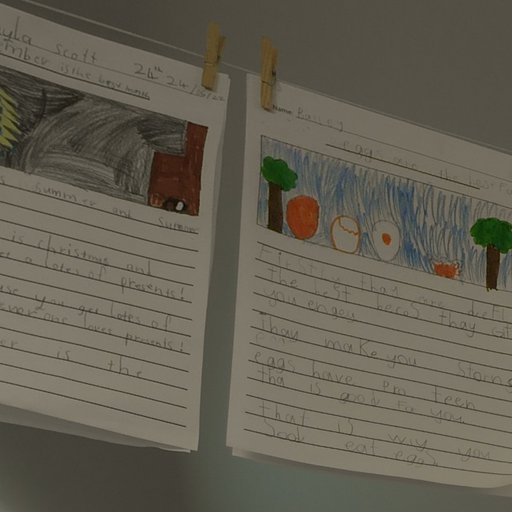 ayla Scott 24th 24/6/22
ember is the best month
is summer and
is christmas and
et a lotes of presents!
use you get lotes of
everone loves presents!
er is the
Name: Bailey
eggs are the best
Firstly thay are
the best becos thay
you
Thay make you
eggs have pro teen
tha is good For you.
that is way you
eat eggs.